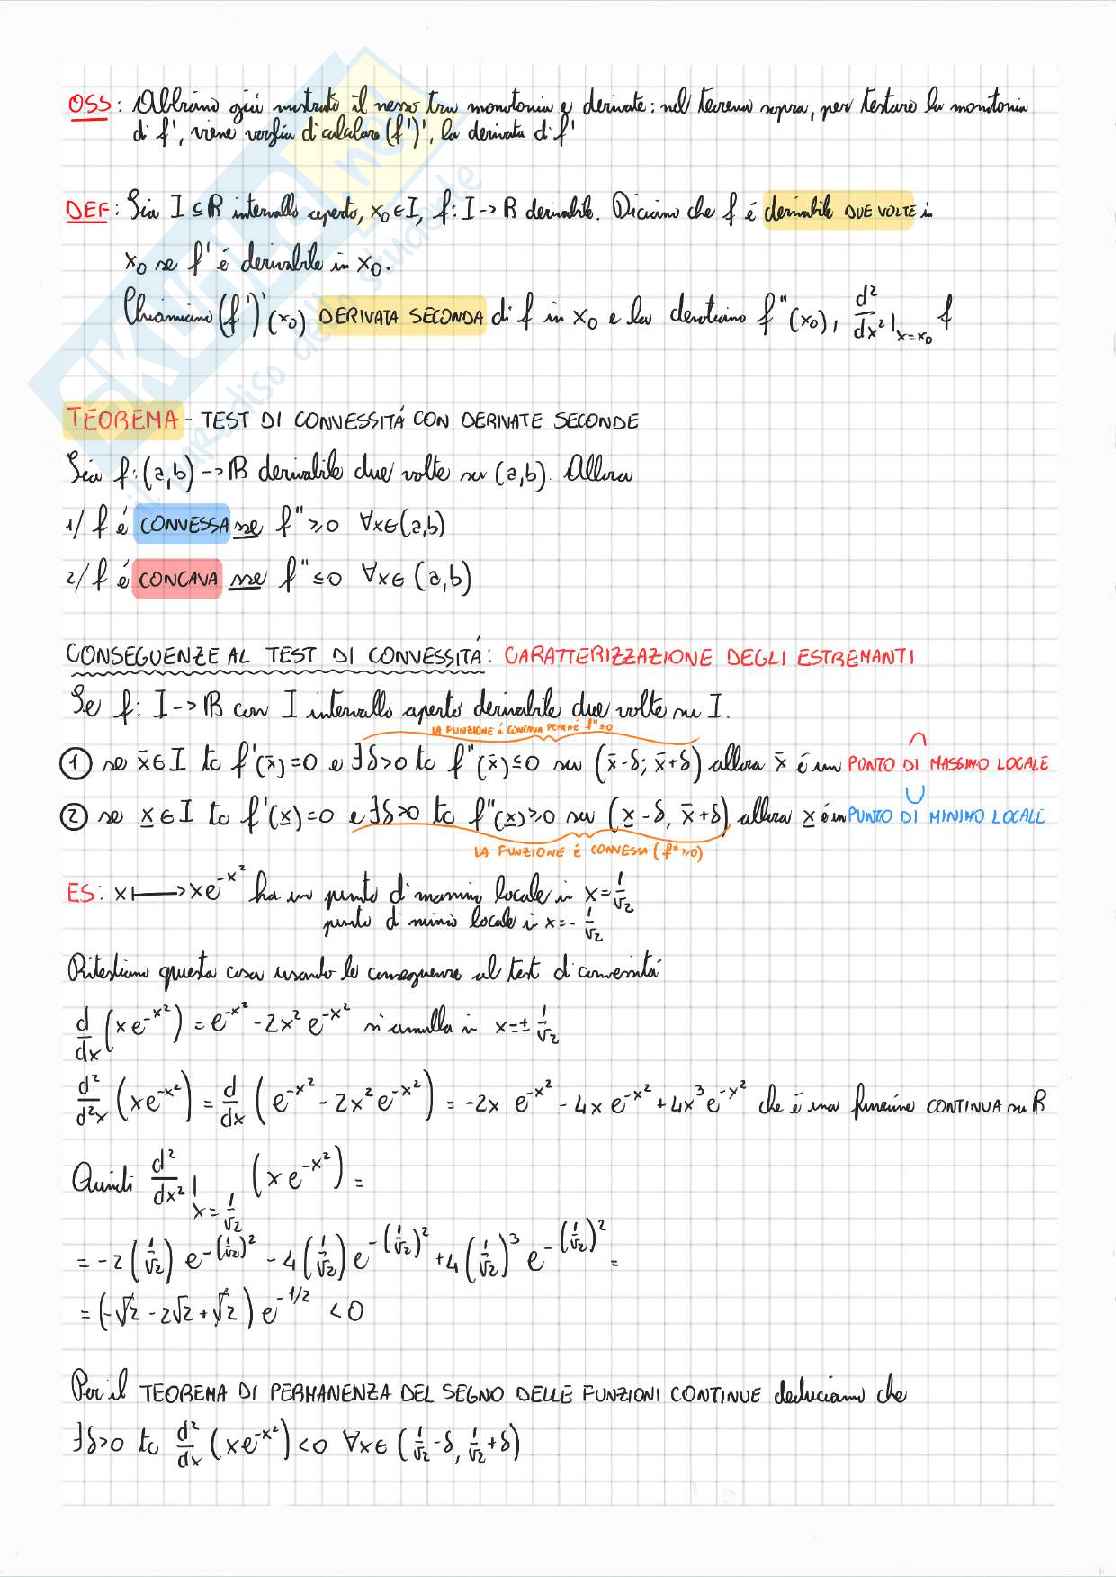 OSS: Abbiamo già mostrato il nesso tra monotonia e derivate: nel teorema sopra, per testare la monotonia
di f', viene voglia di calcolare (f')', la derivata di f'
DEF: Sia I ⊆ R intervallo aperto, x₀∈I, f: I → R derivabile. Diciamo che f é derivabile DUE VOLTE in
x₀ se f' é derivabile in x₀.
Chiamiamo (f')'(x₀) DERIVATA SECONDA di f in x₀ e la denotiamo f''(x₀), d²/dx²|x=x₀ f
TEOREMA - TEST DI CONVESSITÁ CON DERIVATE SECONDE
Sia f: (a,b) → R derivabile due volte su (a,b). Allora
1/ f é CONVESSA sse f'' ≥ 0 ∀x∈(a,b)
2/ f é CONCAVA sse f'' ≤ 0 ∀x∈(a,b)
CONSEGUENZE AL TEST DI CONVESSITÁ: CARATTERIZZAZIONE DEGLI ESTREMANTI
Se f: I → R con I intervallo aperto derivabile due volte su I.
LA FUNZIONE É CONCAVA POICHÉ f''≤0
① se x̄∈I tc f'(x̄)=0 e ∃δ>0 tc f''(x̄)≤0 su (x̄-δ; x̄+δ) allora x̄ é un PUNTO DI MASSIMO LOCALE
② se x̲∈I tc f'(x̲)=0 e ∃δ>0 tc f''(x̲)≥0 su (x̲-δ, x̄+δ) allora x̲ é in PUNTO DI MINIMO LOCALE
LA FUNZIONE É CONVESSA (f''≥0)
ES: x ⟼ xe^-x² ha un punto di massimo locale in x=1/√2
punto di minimo locale in x=-1/√2
Ritestiamo questa cosa usando le conseguenze al test di convessitá
d/dx (xe^-x²) = e^-x² - 2x² e^-x² si annulla in x=± 1/√2
d²/d²x (xe^-x²) = d/dx (e^-x² - 2x²e^-x²) = -2x e^-x² - 4x e^-x² + 4x³e^-x² che é una funzione CONTINUA su R
Quindi d²/dx²|x=1/√2 (xe^-x²) =
= -2(1/√2) e^-(1/√2)² - 4(1/√2) e^-(1/√2)² + 4(1/√2)³ e^-(1/√2)² =
= (-√2 - 2√2 + √2) e^-1/2 < 0
Per il TEOREMA DI PERMANENZA DEL SEGNO DELLE FUNZIONI CONTINUE deduciamo che
∃δ>0 tc d²/dx (xe^-x²) < 0 ∀x∈ (1/√2-δ, 1/√2+δ)